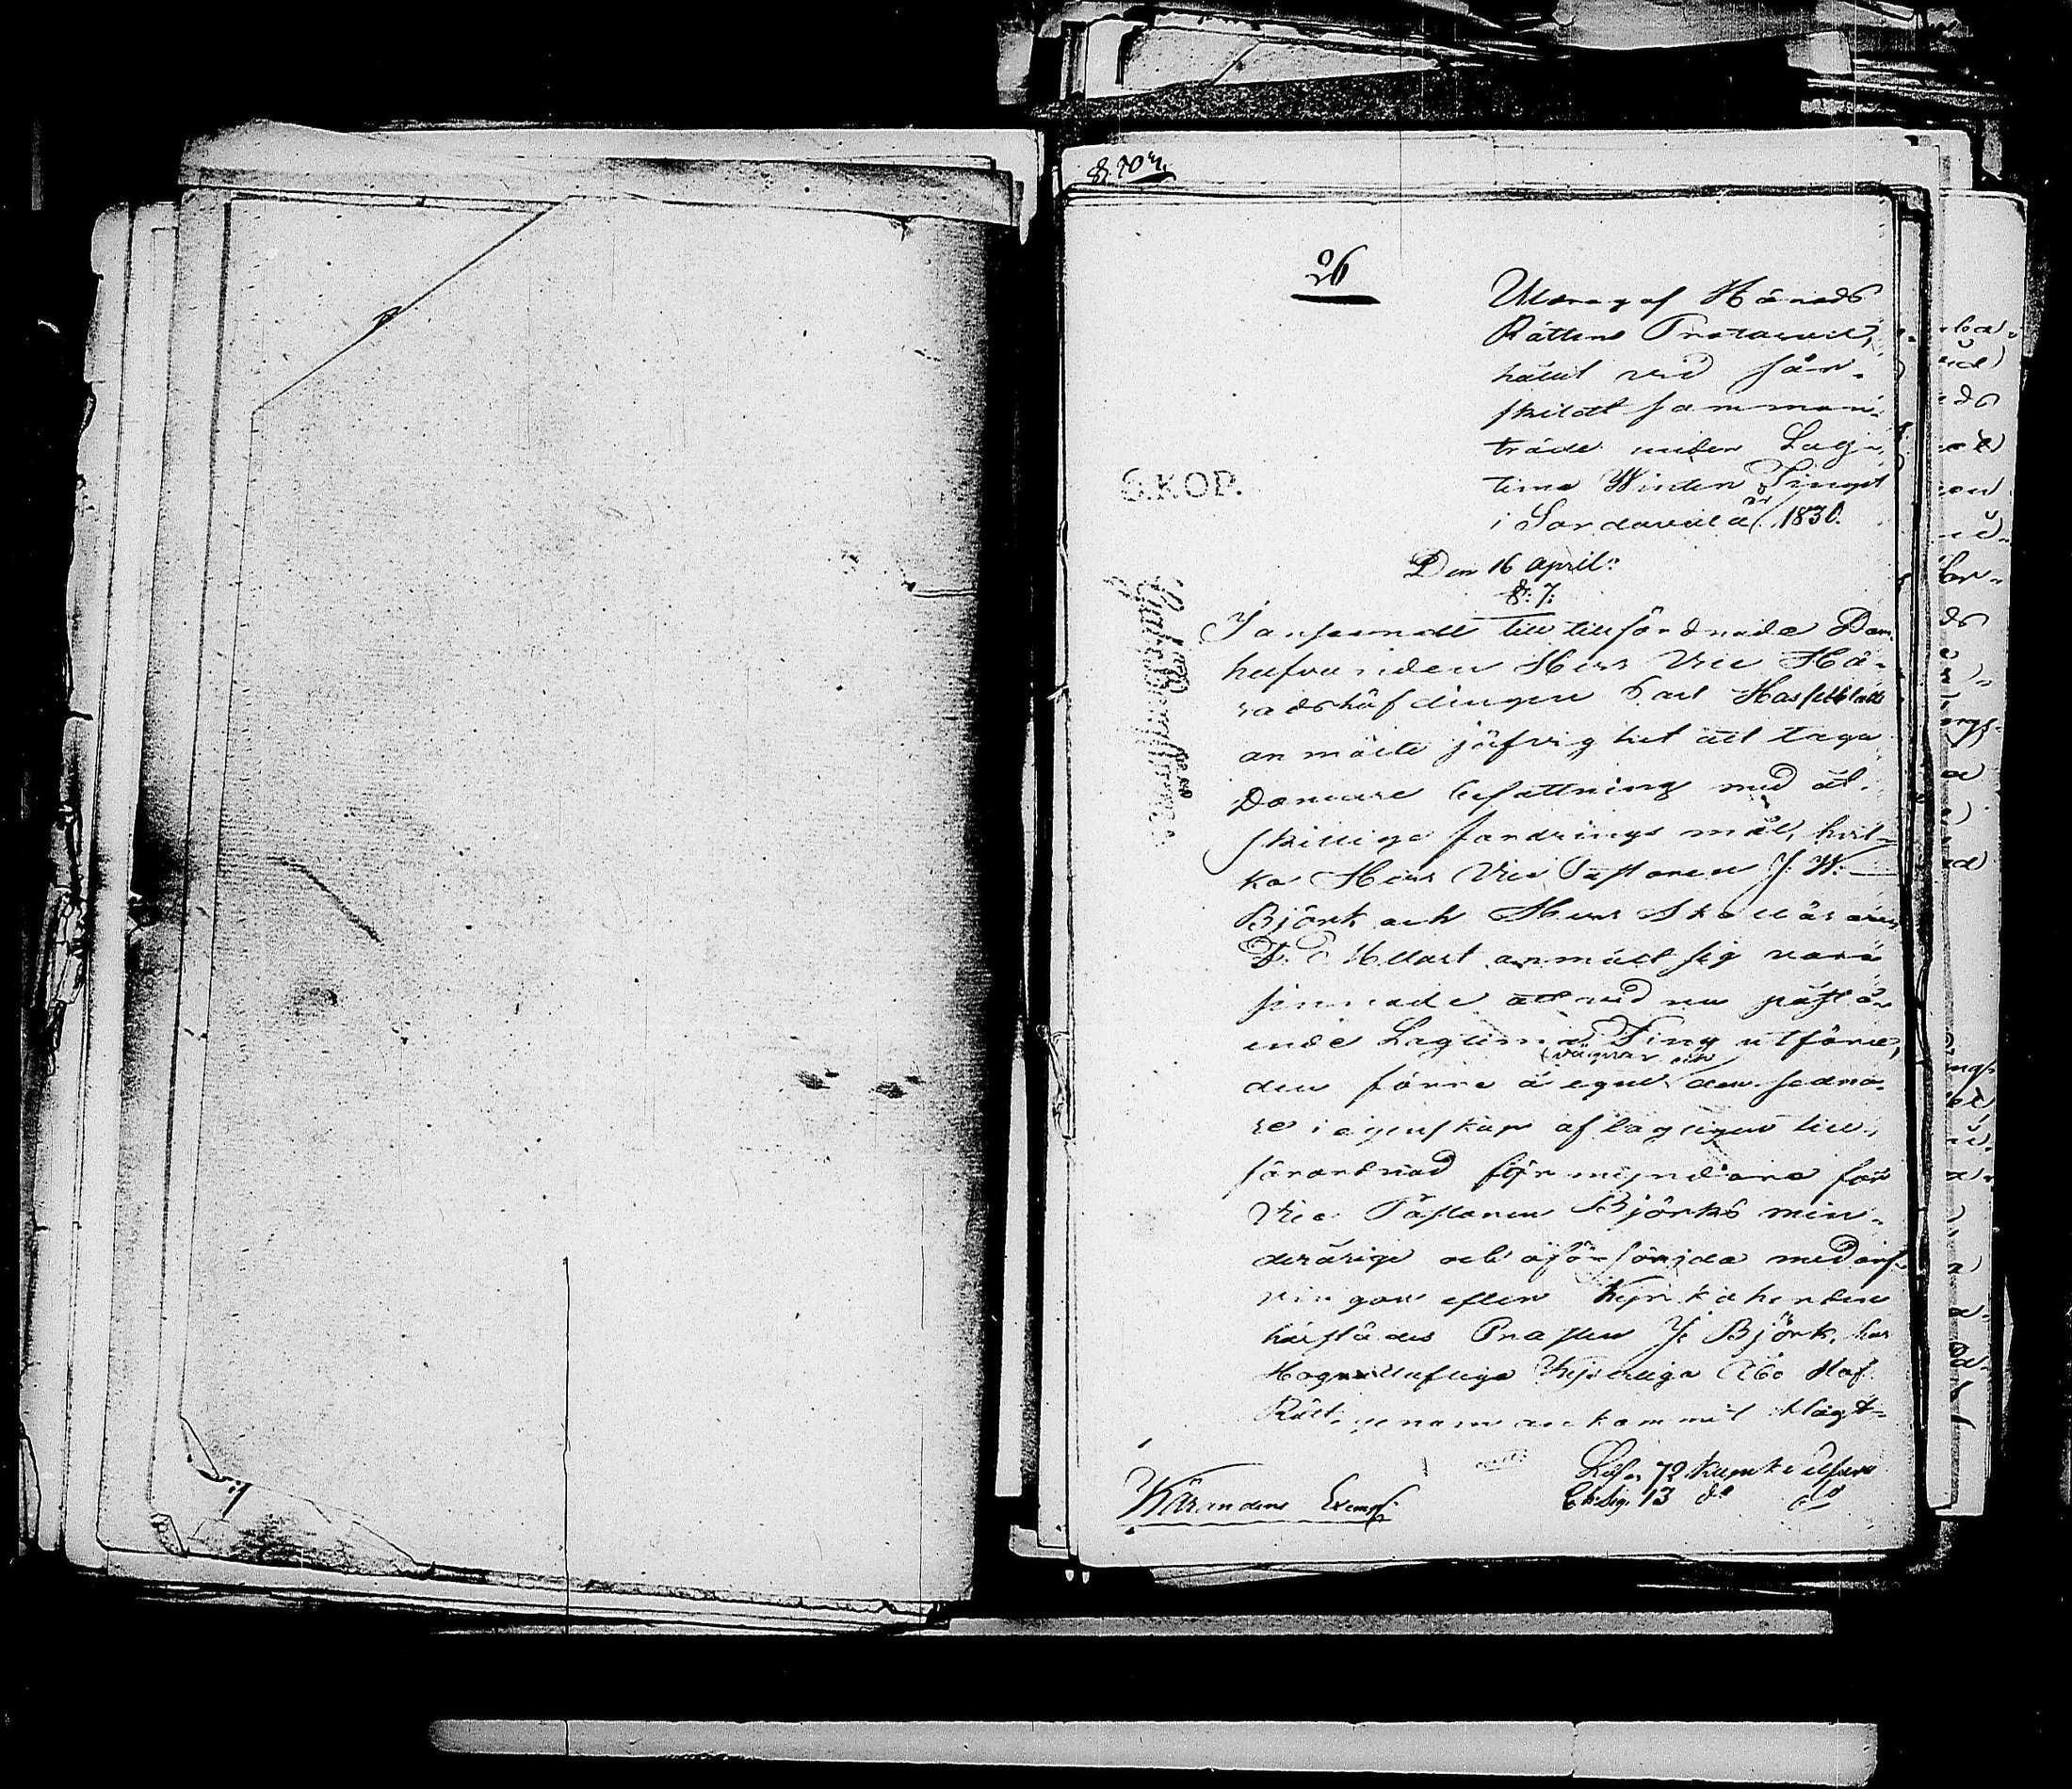 26
Utdrag af Härads
Rättens Protocoll,
hållit vid sär-
skildt samman-
träde under Lag-
tima Winter Tinget
i Sordavala år 1830.
Den 16 April:
§: 7:
I anseende till tillförordnade Dom-
hafvanden Herr Vice Hä-
radshöfdingen Carl Hasselblatt
anmälte jäfvighet att taga
Domare befattning med åt-
skillige fordrings mål, hvil-
ka Herr Vice Pastoren J. W.
Björk och Herr
anmält sig vara
sinnade att vid nu påstå-
ende Lagtima Ting utföra,
den förre å egne vägnar och den sedna-
re i egenskap af lagligen till-
förordnad förmyndare för
Vice Pastoren Björks min-
derårige och oförsörjda medarf-
vingar efter Kyrkoherden
härstädes Prosten J. Björk, har
Höglofliga Kejserliga Åbo Hof
Rätt, genom ankommit
Lösen 72 kopek
Ch: Sig: 13 d:o
Kärandens Exempl:
S.KOP.